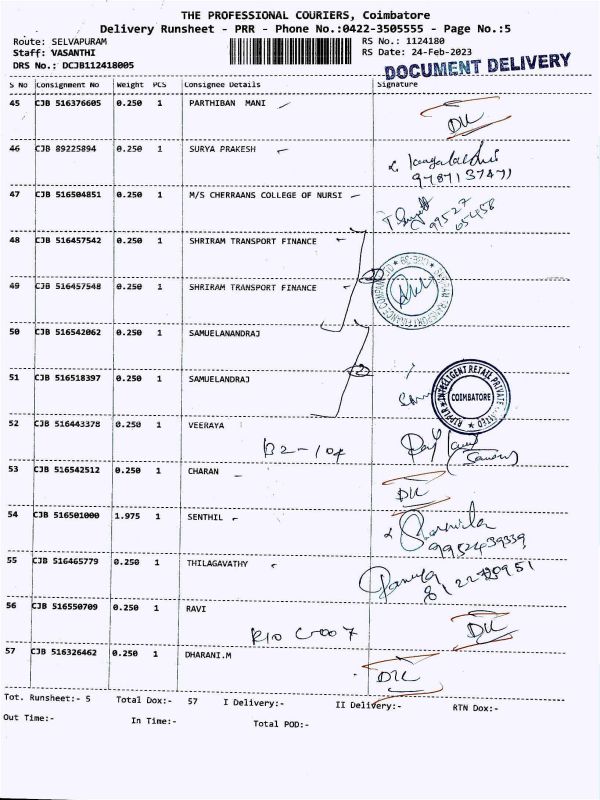 THE PROFESSIONAL COURIERS, Coimbatore
Delivery Runsheet - PRR - Phone No.:0422-3505555 - Page No.:5
Route: SELVAPURAM RS No.: 1124180
Staff: VASANTHI RS Date: 24-Feb-2023
DRS No.: DCJB112418005 DOCUMENT DELIVERY
S No Consignment No Weight PCS Consignee Details Signature
45 CJB 516376605 0.250 1 PARTHIBAN MANI
46 CJB 89225894 0.250 1 SURYA PRAKESH
9787137471
47 CJB 516504851 0.250 1 M/S CHERRAANS COLLEGE OF NURSI
99527
05458
48 CJB 516457542 0.250 1 SHRIRAM TRANSPORT FINANCE
49 CJB 516457548 0.250 1 SHRIRAM TRANSPORT FINANCE
50 CJB 516542062 0.250 1 SAMUELANANDRAJ
51 CJB 516518397 0.250 1 SAMUELANDRAJ
INTELLIGENT RETAIL PRIVATE LIMITED
COIMBATORE
52 CJB 516443378 0.250 1 VEERAYA
B2-104
53 CJB 516542512 0.250 1 CHARAN
54 CJB 516501000 1.975 1 SENTHIL
Sharmila
9952439339
55 CJB 516465779 0.250 1 THILAGAVATHY
56 CJB 516550709 0.250 1 RAVI
57 CJB 516326462 0.250 1 DHARANI.M
Tot. Runsheet:- 5 Total Dox:- 57 I Delivery:- II Delivery:- RTN Dox:-
Out Time:- In Time:- Total POD:-